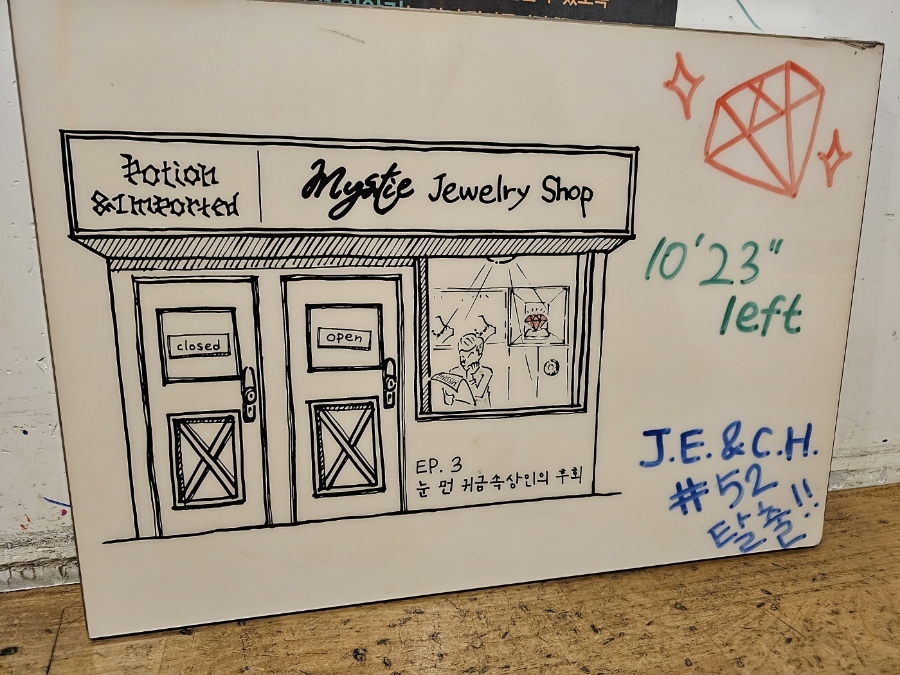 Potion
&Imported
Mystic Jewelry Shop
closed
open
EP. 3
눈 먼 귀금속상인의 후회
10'23"
left
J.E. & C.H.
#52
탈출!!